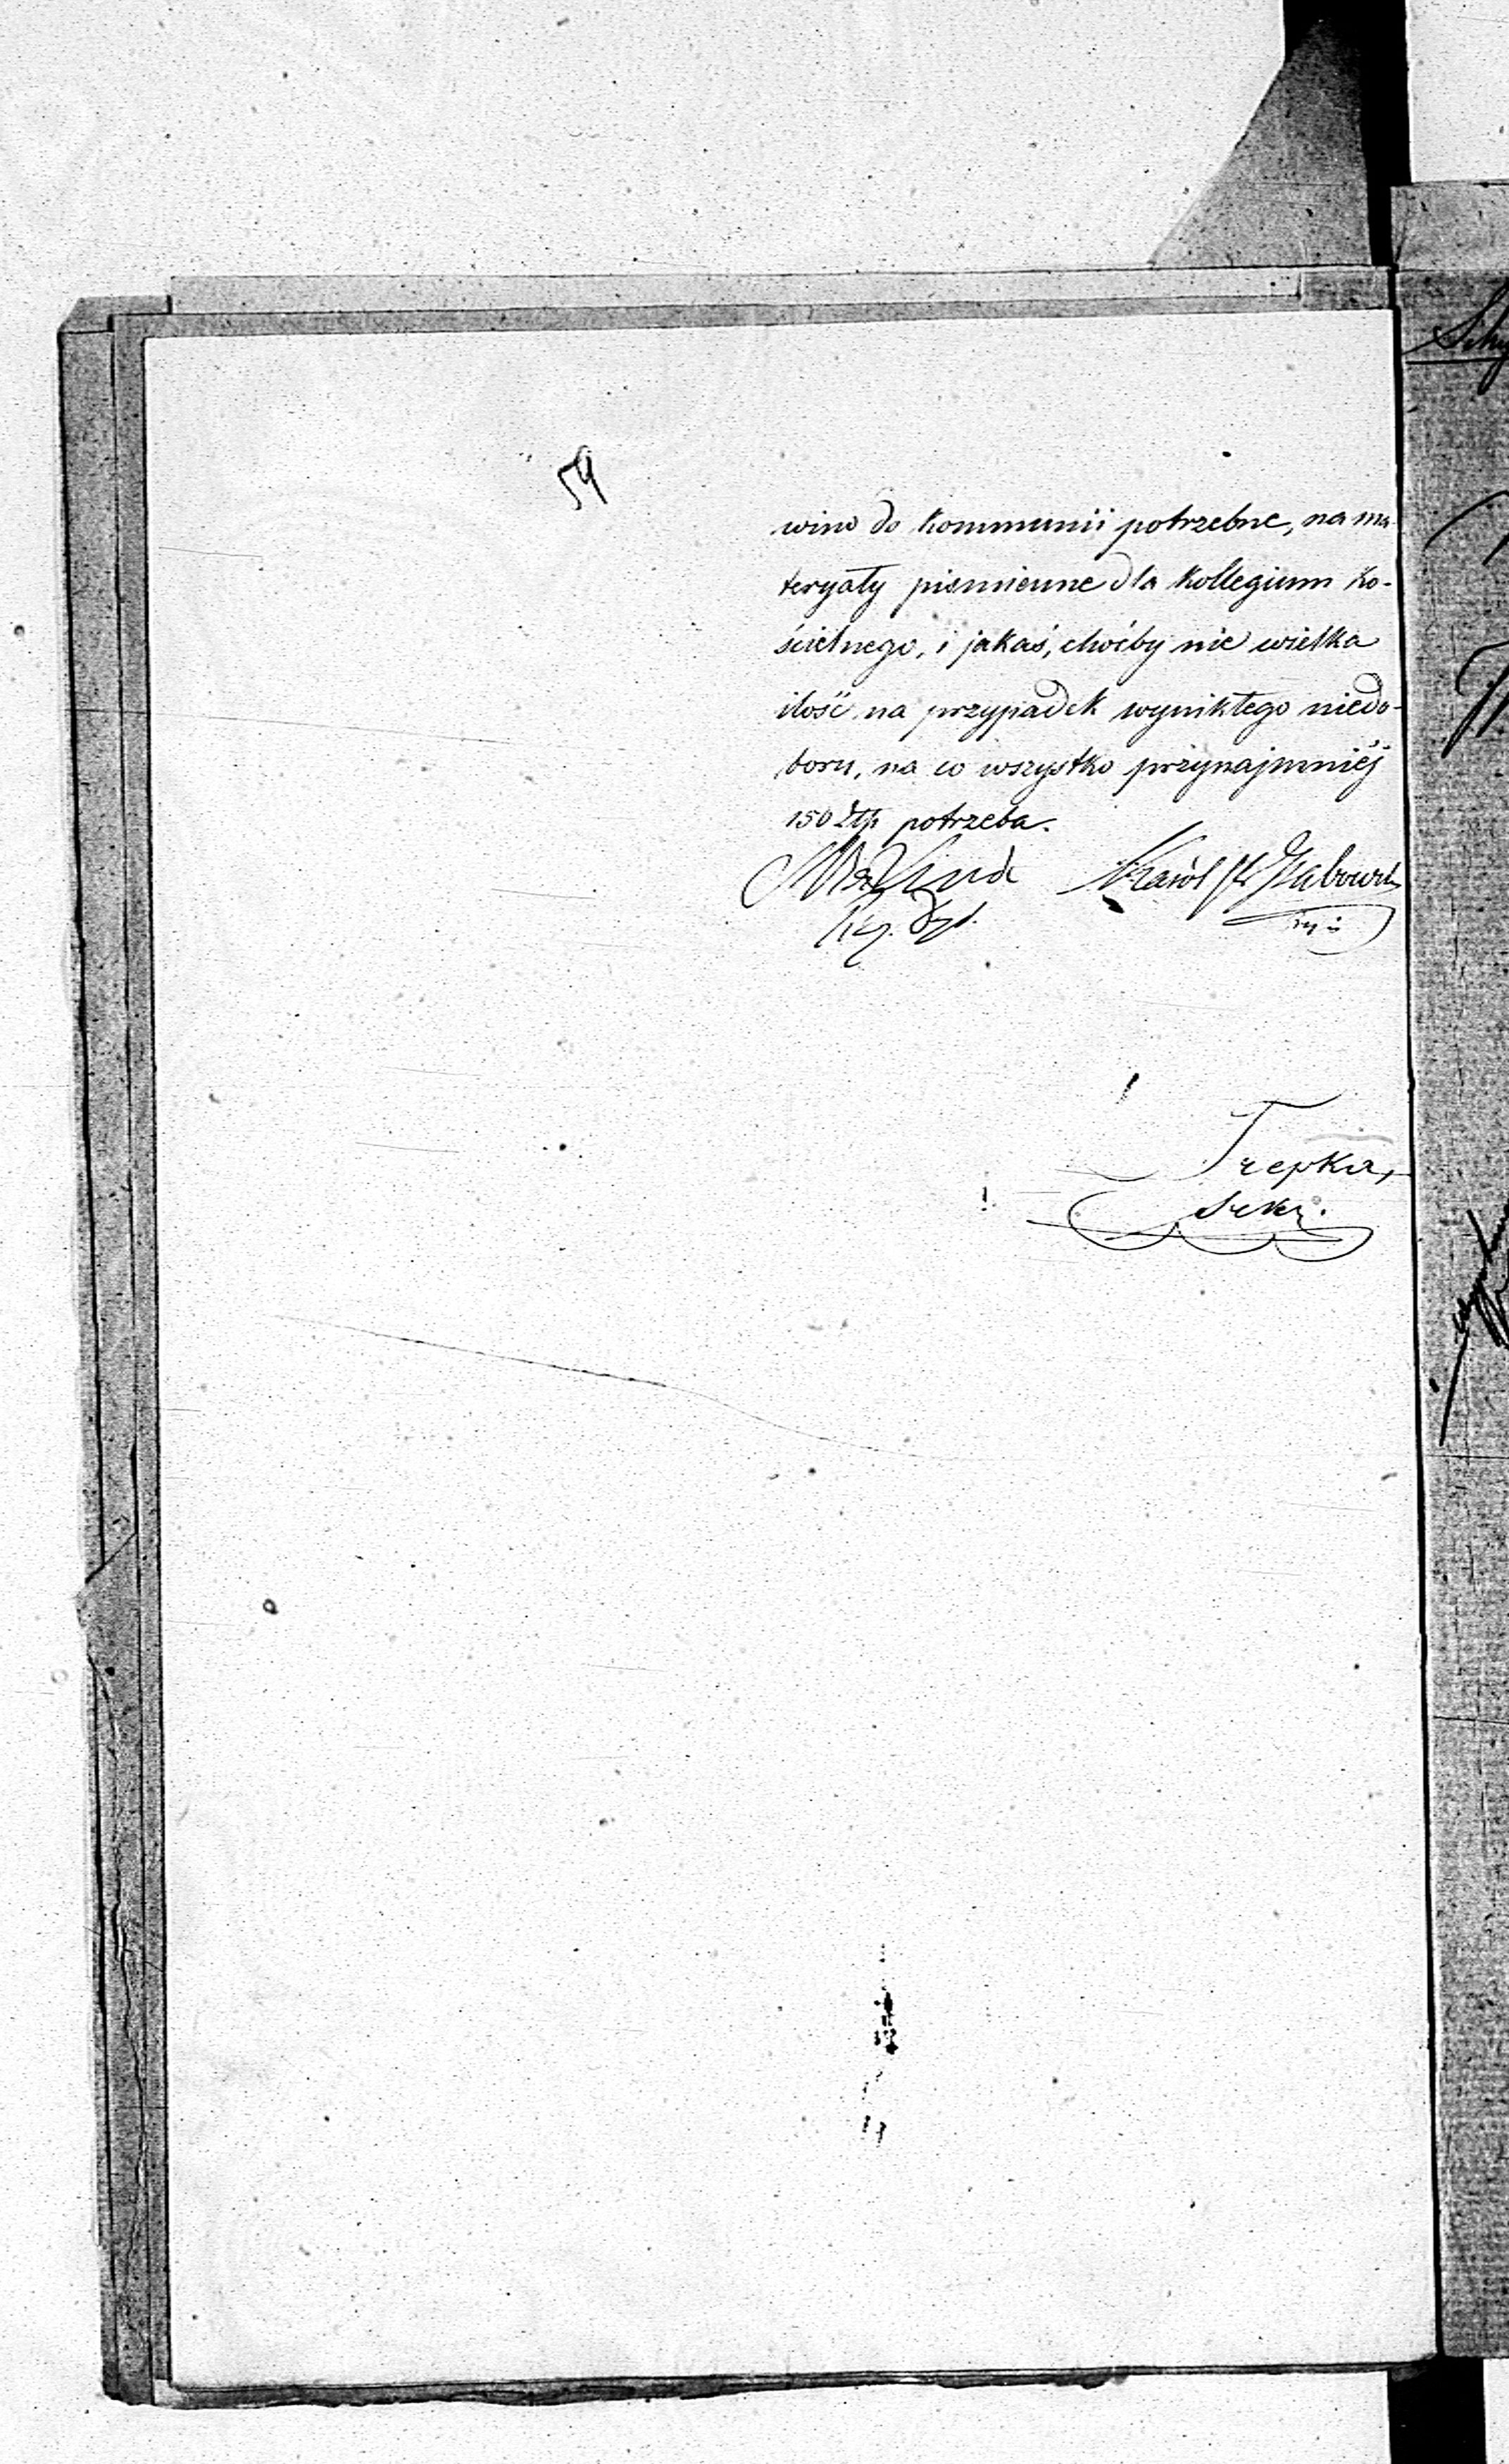 59
wino do kommunii potrzebne, na ma-
teryały piśmienne dla Kollegium Ko-
ścielnego, i jakaś, choćby nie wielka
ilość na przypadek wynikłego niedo-
boru, na co wszystko przynajmniéj
150 Złp potrzeba.
Karól
Trepka,
Sekr.